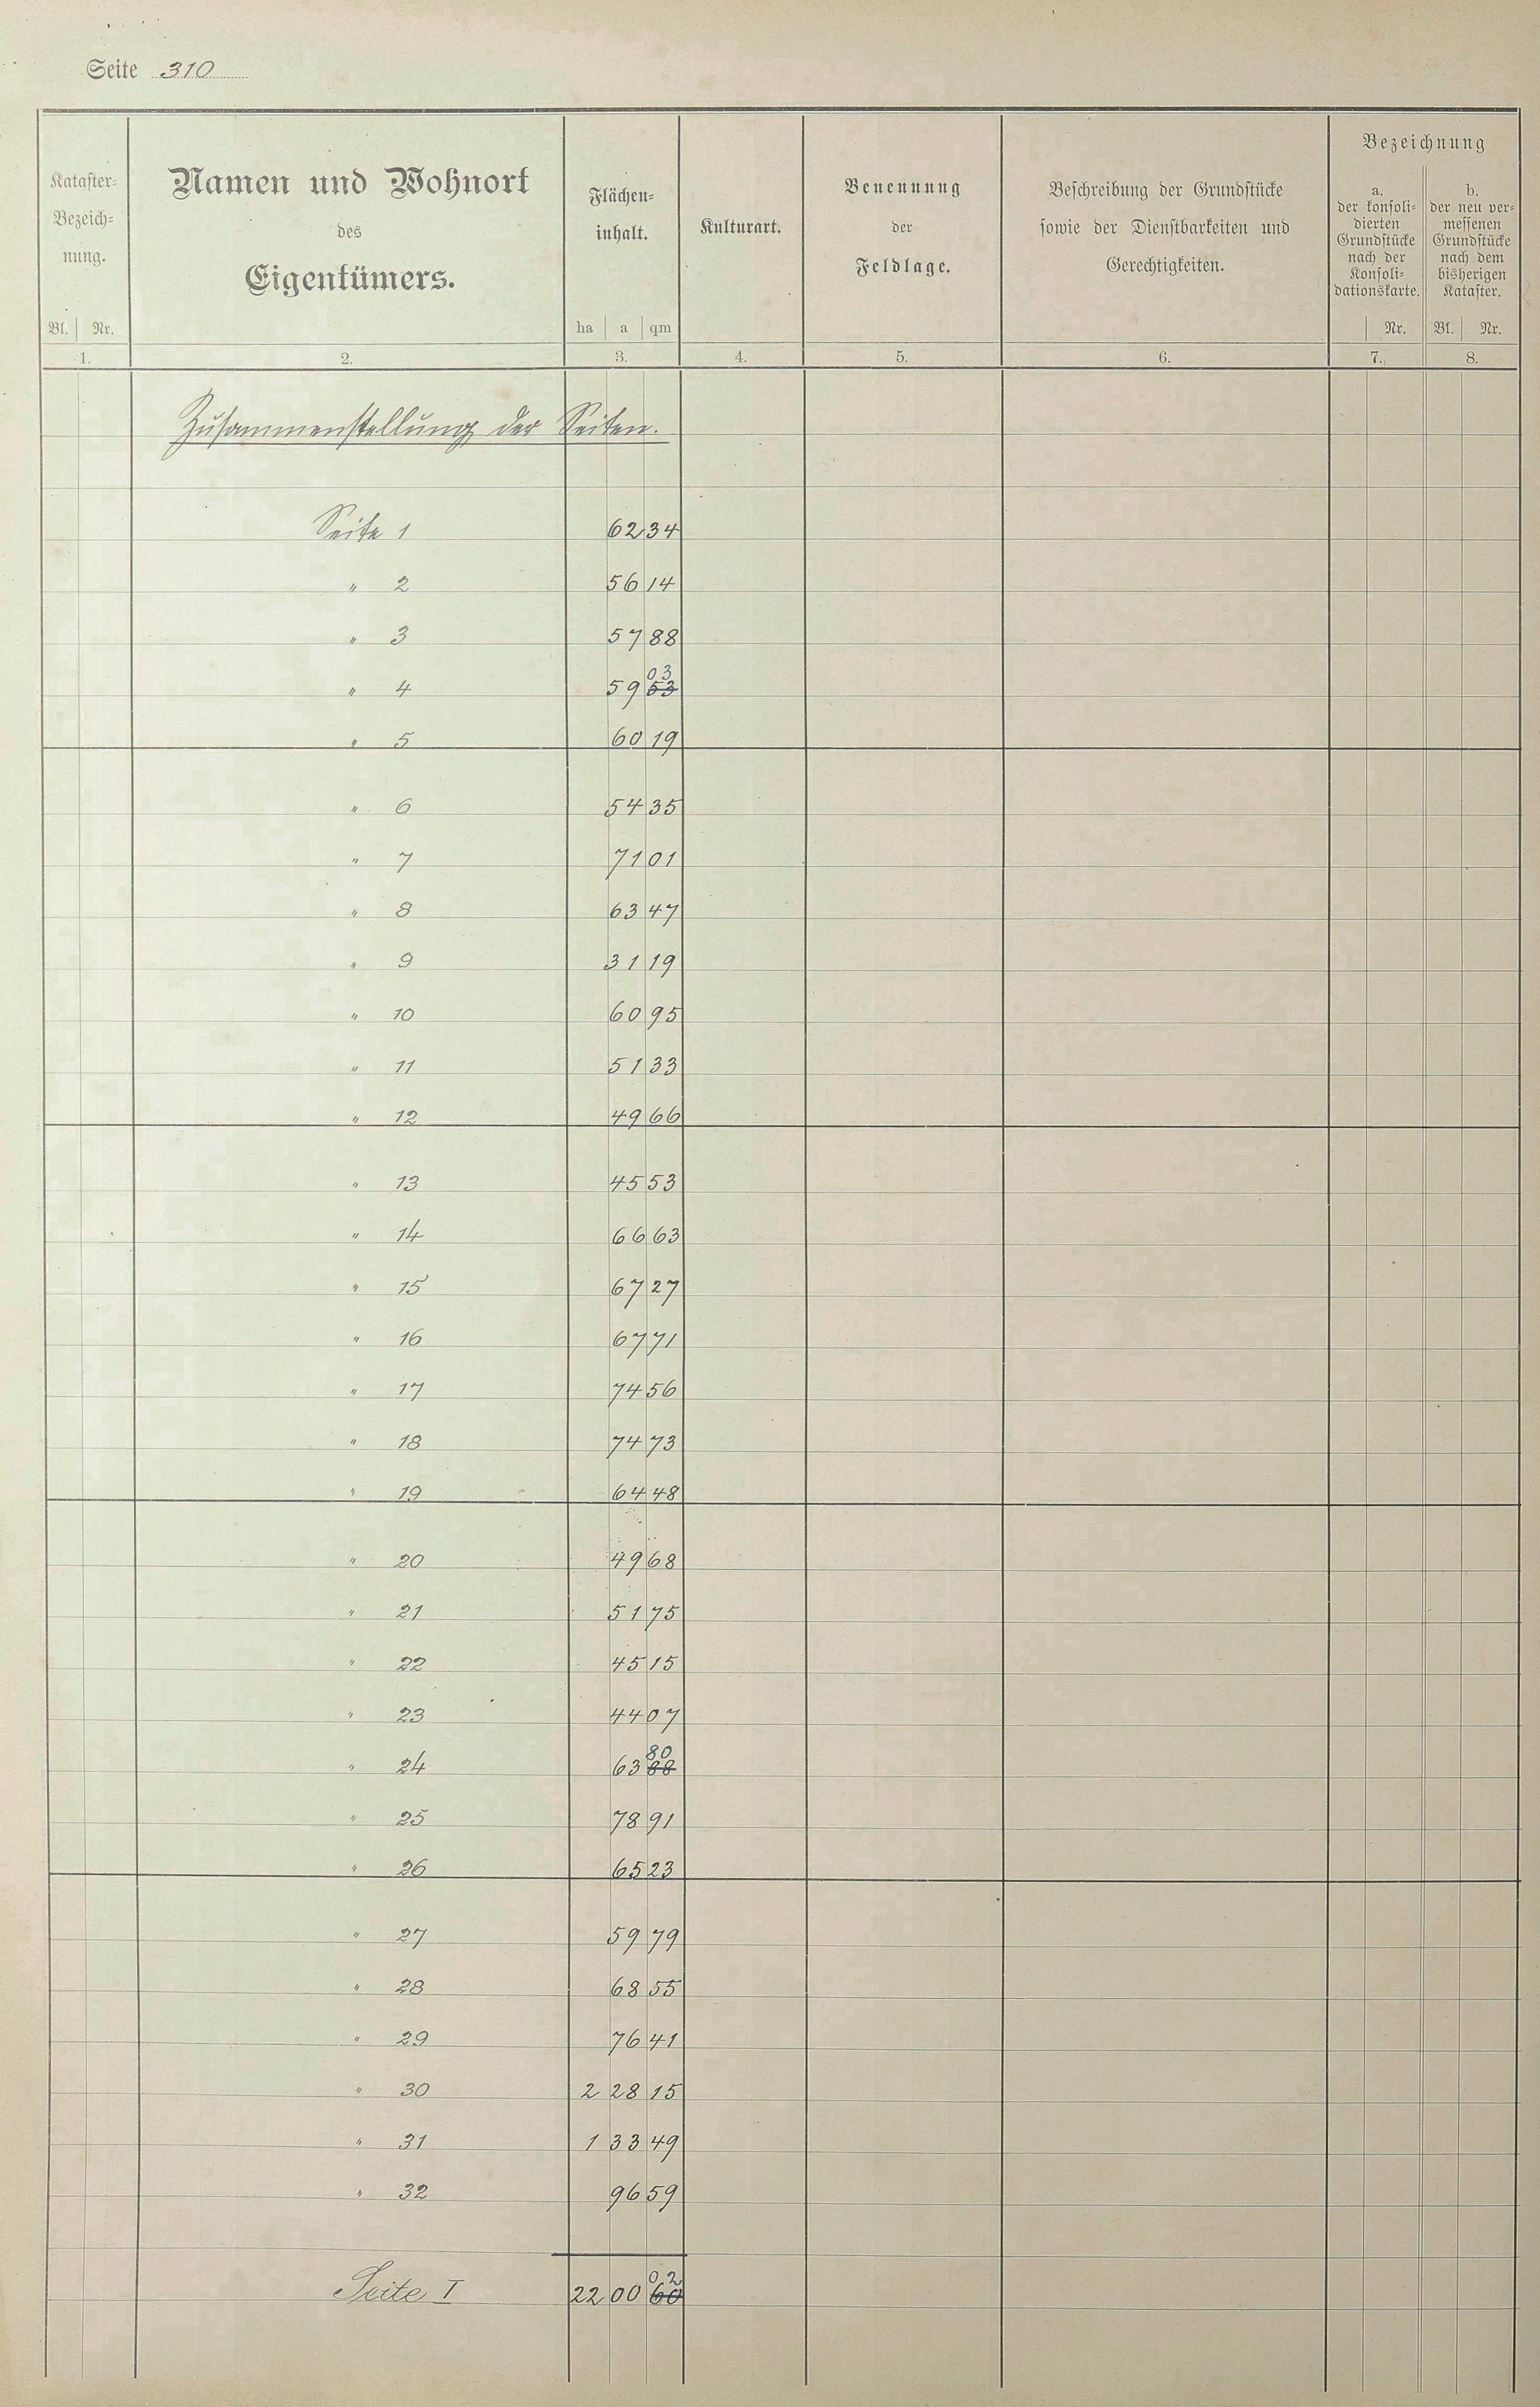 Seite 310
Kataster-
Bezeich-
nung.
Bl. Nr.
1.
Namen und Wohnort
des
Eigentümers.
2.
Flächen-
inhalt.
ha a qm
3.
Kulturart.
4.
Benennung
der
Feldlage.
5.
Beschreibung der Grundstücke
sowie der Dienstbarkeiten und
Gerechtigkeiten.
6.
Bezeichnung
a.
der konsoli-
dierten
Grundstücke
nach der
Konsoli-
dationskarte.
Nr.
7.
b.
der neu ver-
messenen
Grundstücke
nach dem
bisherigen
Kataster.
Bl. Nr.
8.
Zusammenstellung der Seiten.
Seite 1 62 34
" 2 56 14
" 3 57 88
03
" 4 59 53
" 5 60 19
" 6 54 35
" 7 71 01
" 8 63 47
" 9 31 19
" 10 60 95
" 11 51 33
" 12 49 66
" 13 45 53
" 14 66 63
" 15 67 27
" 16 67 71
" 17 74 56
" 18 74 73
" 19 64 48
" 20 49 68
" 21 51 75
" 22 45 15
" 23 44 07
80
" 24 63 88
" 25 78 91
" 26 65 23
" 27 59 79
" 28 68 55
" 29 76 41
" 30 2 28 15
" 31 1 33 49
" 32 96 59
02
Seite I 22 00 60